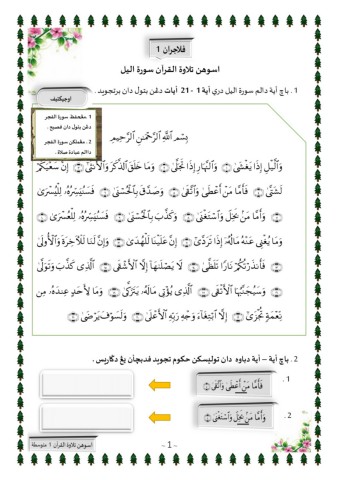 ڤلاجرن 1
اسوهن تلاوة القرآن سورة اليل
1 . باچ أية دالم سورة اليل دري أية 1 - 21 أيات دڠن بتول دان برتجويد .
اوبجيكتيف
1. مڠحفظ سورة الفجر
دڠن بتول دان فصيح .
2. مڠعملكن سورة الفجر
دالم عبادة صلاة .
بِسْمِ ٱللَّهِ ٱلرَّحْمَٰنِ ٱلرَّحِيمِ
وَٱلَّيْلِ إِذَا يَغْشَىٰ ١ وَٱلنَّهَارِ إِذَا تَجَلَّىٰ ٢ وَمَا خَلَقَ ٱلذَّكَرَ وَٱلْأُنثَىٰٓ ٣ إِنَّ سَعْيَكُمْ
لَشَتَّىٰ ٤ فَأَمَّا مَنْ أَعْطَىٰ وَٱتَّقَىٰ ٥ وَصَدَّقَ بِٱلْحُسْنَىٰ ٦ فَسَنُيَسِّرُهُۥ لِلْيُسْرَىٰ
٧ وَأَمَّا مَنۢ بَخِلَ وَٱسْتَغْنَىٰ ٨ وَكَذَّبَ بِٱلْحُسْنَىٰ ٩ فَسَنُيَسِّرُهُۥ لِلْعُسْرَىٰ ١٠
وَمَا يُغْنِى عَنْهُ مَالُهُۥٓ إِذَا تَرَدَّىٰٓ ١١ إِنَّ عَلَيْنَا لَلْهُدَىٰ ١٢ وَإِنَّ لَنَا لَلْـَٔاخِرَةَ وَٱلْأُولَىٰ
١٣ فَأَنذَرْتُكُمْ نَارًا تَلَظَّىٰ ١٤ لَا يَصْلَىٰهَآ إِلَّا ٱلْأَشْقَى ١٥ ٱلَّذِى كَذَّبَ وَتَوَلَّىٰ
١٦ وَسَيُجَنَّبُهَا ٱلْأَتْقَى ١٧ ٱلَّذِى يُؤْتِى مَالَهُۥ يَتَزَكَّىٰ ١٨ وَمَا لِأَحَدٍ عِندَهُۥ مِن
نِّعْمَةٍ تُجْزَىٰٓ ١٩ إِلَّا ٱبْتِغَآءَ وَجْهِ رَبِّهِ ٱلْأَعْلَىٰ ٢٠ وَلَسَوْفَ يَرْضَىٰ ٢١
2 . باچ أية – أية دباوه دان توليسكن حكوم تجويد فدباچأن يڠ دݢاريس .
1 . فَأَمَّا مَنْ أَعْطَىٰ وَٱتَّقَىٰ ٥
2 . وَأَمَّا مَنۢ بَخِلَ وَٱسْتَغْنَىٰ ٨
~ 1 ~
اسوهن تلاوة القرآن 1 متوسطة